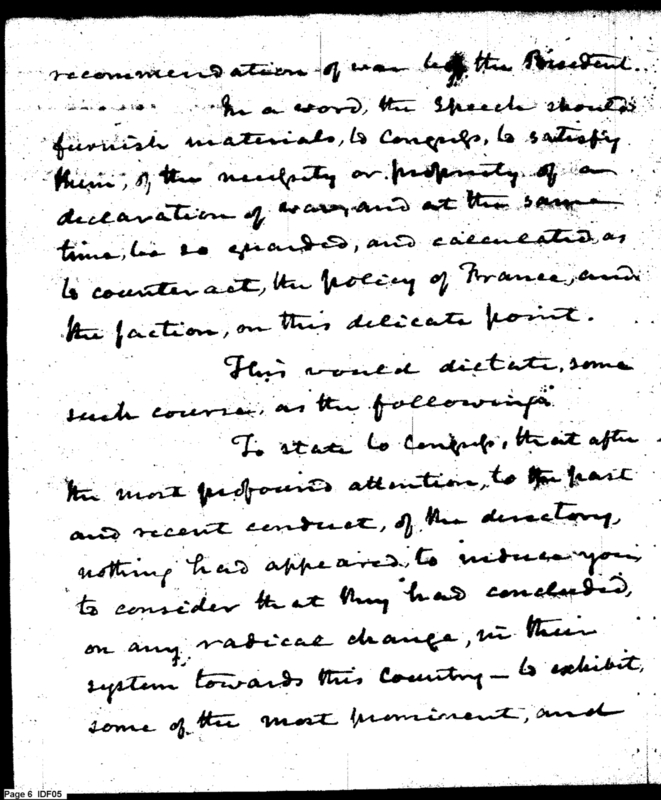 recommendation of war by the President.
In a word, the speech should
furnish materials, to Congress, to satisfy
them, of the necessity or propriety of a
declaration of war, and at the same
time, be so guarded, and calculated, as
to counteract, the policy of France, and
the faction, on this delicate point.
This would dictate, some
such course, as the following.
To state to Congress, that after
the most profound attention, to the past
and recent conduct, of the directory,
nothing had appeared, to induce you,
to consider that they had concluded,
on any radical change, in their
system towards this Country — to exhibit,
some of the most prominent, and
Page 6 IDF05